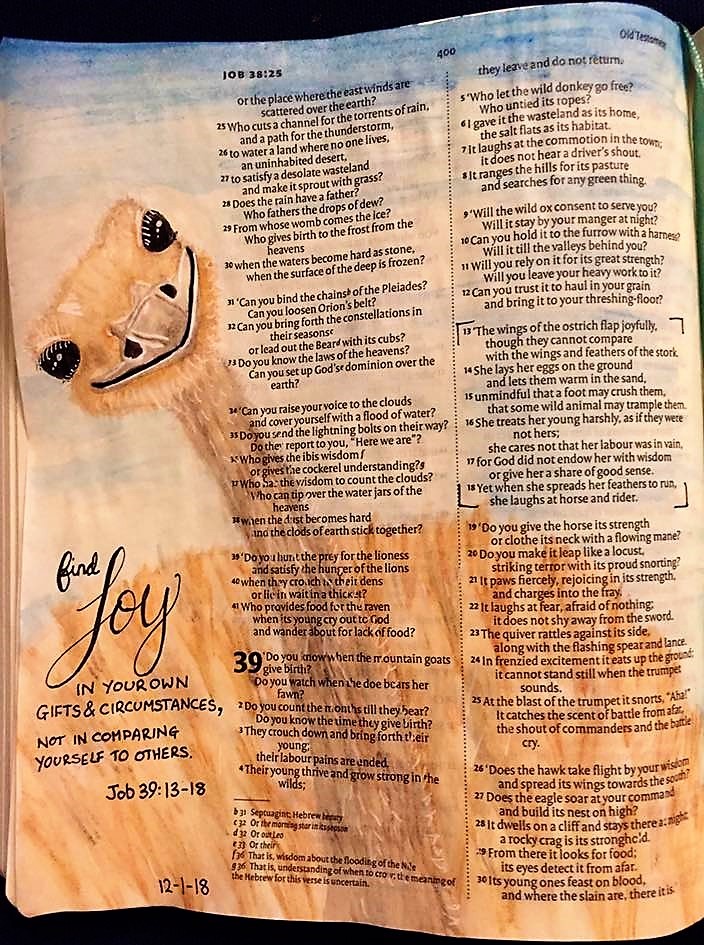 JOB 38:25
400
Old Testament
or the place where the east winds are
scattered over the earth?
25 Who cuts a channel for the torrents of rain,
and a path for the thunderstorm,
26 to water a land where no one lives,
an uninhabited desert,
27 to satisfy a desolate wasteland
and make it sprout with grass?
28 Does the rain have a father?
Who fathers the drops of dew?
29 From whose womb comes the ice?
Who gives birth to the frost from the
heavens
30 when the waters become hard as stone,
when the surface of the deep is frozen?
31 'Can you bind the chains b of the Pleiades?
Can you loosen Orion's belt?
32 Can you bring forth the constellations in
their seasons c
or lead out the Bear d with its cubs?
33 Do you know the laws of the heavens?
Can you set up God's e dominion over the
earth?
34 'Can you raise your voice to the clouds
and cover yourself with a flood of water?
35 Do you send the lightning bolts on their way?
Do they report to you, "Here we are"?
36 Who gives the ibis wisdom f
or gives the cockerel understanding? g
37 Who has the wisdom to count the clouds?
Who can tip over the water jars of the
heavens
38 when the dust becomes hard
and the clods of earth stick together?
39 'Do you hunt the prey for the lioness
and satisfy the hunger of the lions
40 when they crouch in their dens
or lie in wait in a thicket?
41 Who provides food for the raven
when its young cry out to God
and wander about for lack of food?
39 'Do you know when the mountain goats
give birth?
Do you watch when the doe bears her
fawn?
2 Do you count the months till they bear?
Do you know the time they give birth?
3 They crouch down and bring forth their
young;
their labour pains are ended.
4 Their young thrive and grow strong in the
wilds;
b 31 Septuagint; Hebrew beauty
c 32 Or the morning star in its season
d 32 Or out Leo
e 33 Or their
f 36 That is, wisdom about the flooding of the Nile
g 36 That is, understanding of when to crow; the meaning of
the Hebrew for this verse is uncertain.
they leave and do not return.
5 'Who let the wild donkey go free?
Who untied its ropes?
6 I gave it the wasteland as its home,
the salt flats as its habitat.
7 It laughs at the commotion in the town;
it does not hear a driver's shout.
8 It ranges the hills for its pasture
and searches for any green thing.
9 'Will the wild ox consent to serve you?
Will it stay by your manger at night?
10 Can you hold it to the furrow with a harness?
Will it till the valleys behind you?
11 Will you rely on it for its great strength?
Will you leave your heavy work to it?
12 Can you trust it to haul in your grain
and bring it to your threshing-floor?
13 'The wings of the ostrich flap joyfully,
though they cannot compare
with the wings and feathers of the stork.
14 She lays her eggs on the ground
and lets them warm in the sand,
15 unmindful that a foot may crush them,
that some wild animal may trample them.
16 She treats her young harshly, as if they were
not hers;
she cares not that her labour was in vain,
17 for God did not endow her with wisdom
or give her a share of good sense.
18 Yet when she spreads her feathers to run,
she laughs at horse and rider.
19 'Do you give the horse its strength
or clothe its neck with a flowing mane?
20 Do you make it leap like a locust,
striking terror with its proud snorting?
21 It paws fiercely, rejoicing in its strength,
and charges into the fray.
22 It laughs at fear, afraid of nothing;
it does not shy away from the sword.
23 The quiver rattles against its side,
along with the flashing spear and lance.
24 In frenzied excitement it eats up the ground;
it cannot stand still when the trumpet
sounds.
25 At the blast of the trumpet it snorts, "Aha!"
It catches the scent of battle from afar,
the shout of commanders and the battle
cry.
26 'Does the hawk take flight by your wisdom
and spread its wings towards the south?
27 Does the eagle soar at your command
and build its nest on high?
28 It dwells on a cliff and stays there at night;
a rocky crag is its stronghold.
29 From there it looks for food;
its eyes detect it from afar.
30 Its young ones feast on blood,
and where the slain are, there it is.'
find
Joy
IN YOUR OWN
GIFTS & CIRCUMSTANCES,
NOT IN COMPARING
YOURSELF TO OTHERS.
Job 39:13-18
12-1-18